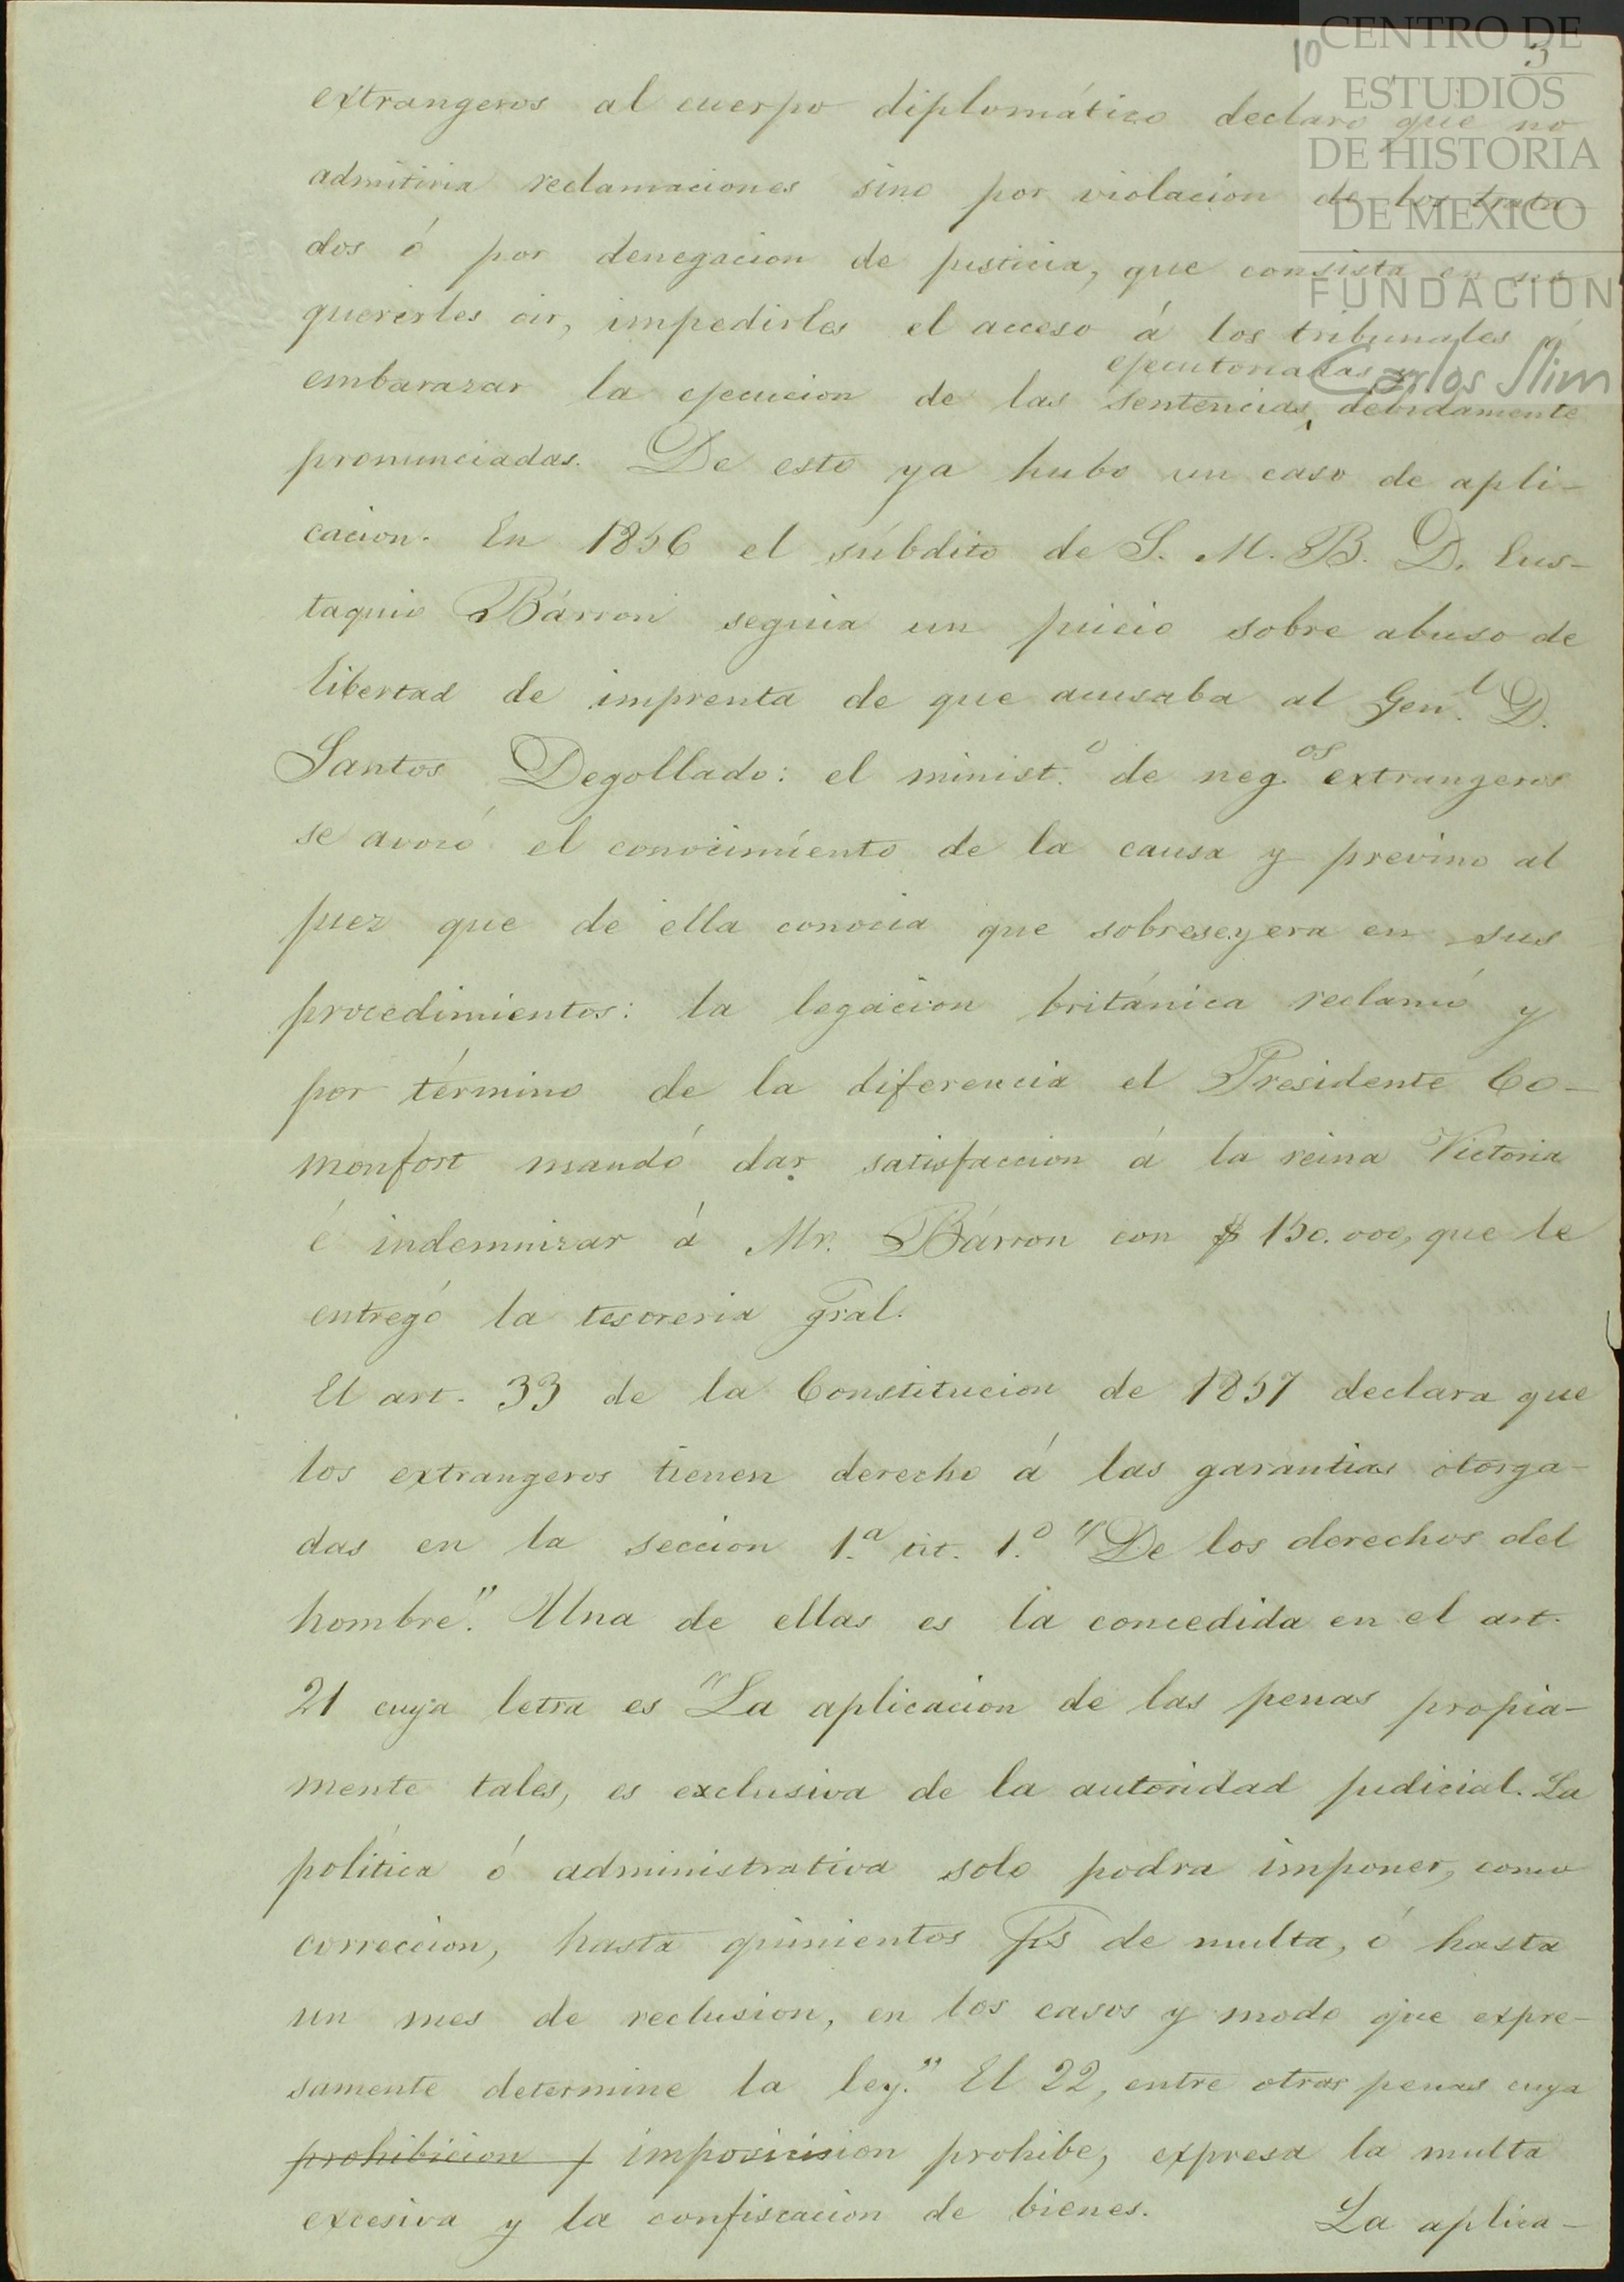 CENTRO DE
ESTUDIOS
DE HISTORIA
DE MEXICO
FUNDACION
Carlos Slim
10
3
extrangeros al cuerpo diplomático declaró que no
admitiria reclamaciones sino por violacion de los trata-
dos ó por denegacion de justicia, que consista en no
quererles oir, impedirles el acceso á los tribunales ó
ejecutoriadas y
embarazar la ejecucion de las sentencias, debidamente
pronunciadas. De esto ya hubo un caso de apli-
cacion. En 1856 el súbdito de S. M. B. D. Eus-
taquio Bárron seguia un juicio sobre abuso de
libertad de imprenta de que acusaba al Gen.l D.
Santos Degollado: el minist.o de neg.os extrangeros
se avocó el conocimiento de la causa y previno al
juez que de ella conocia que sobreseyera en sus
procedimientos: la legacion británica reclamó y
por término de la diferencia el Presidente Co-
monfort mandó dar satisfaccion á la reina Victoria
é indemnizar á Mr. Bárron con $ 150.000, que le
entregó la tesoreria gral.
El art. 33 de la Constitucion de 1857 declara que
los extrangeros tienen derecho á las garantias otorga-
das en la seccion 1.a tit. 1.o "De los derechos del
hombre". Una de ellas es la concedida en el art.
21 cuya letra es "La aplicacion de las penas propia-
mente tales, es exclusiva de la autoridad judicial. La
política ó administrativa solo podra imponer, como
correccion, hasta quinientos ps de multa, ó hasta
un mes de reclusion, en los casos y modo que expre-
samente determine la ley." El 22, entre otras penas cuya
prohibicion y imposicision prohibe, expresa la multa
excesiva y la confiscacion de bienes. La aplica-